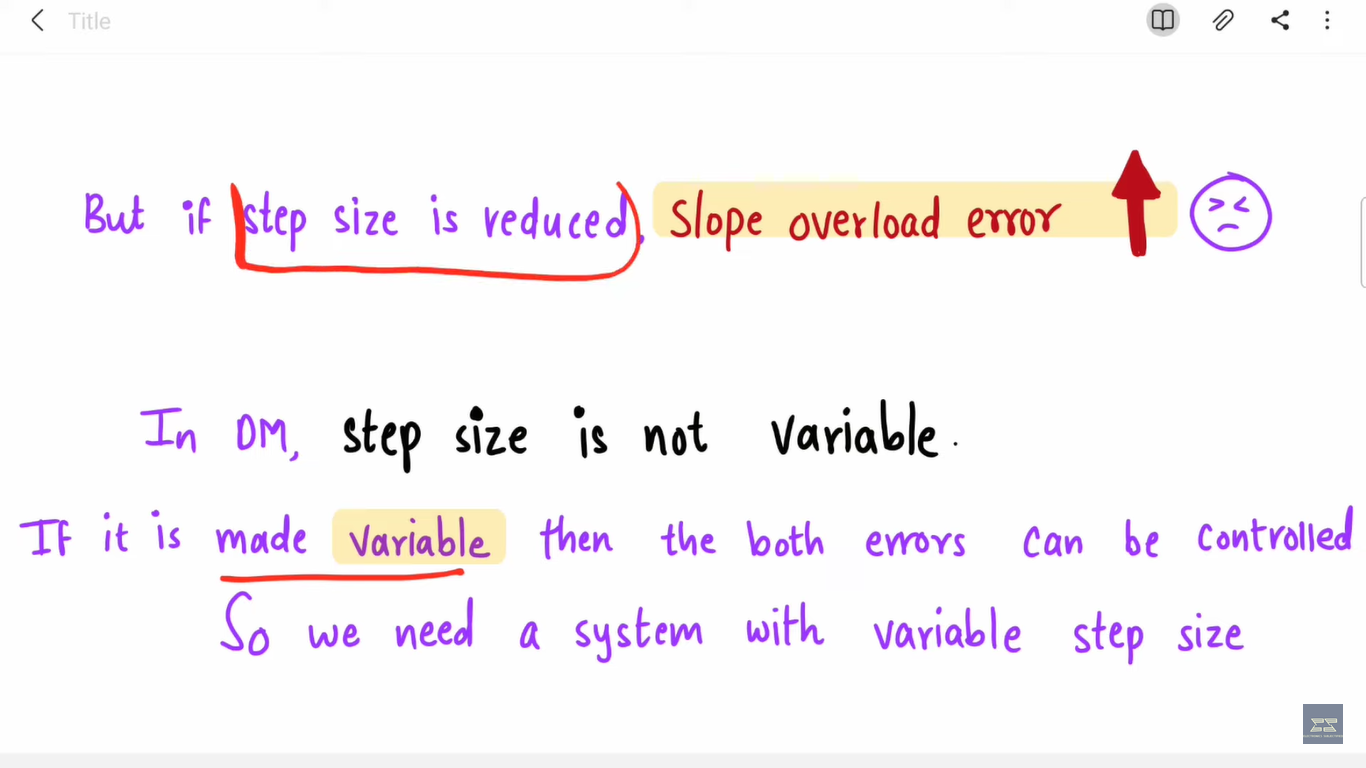 Title
But if step size is reduced, Slope overload error
In DM, step size is not variable.
If it is made variable then the both errors can be controlled
So we need a system with variable step size